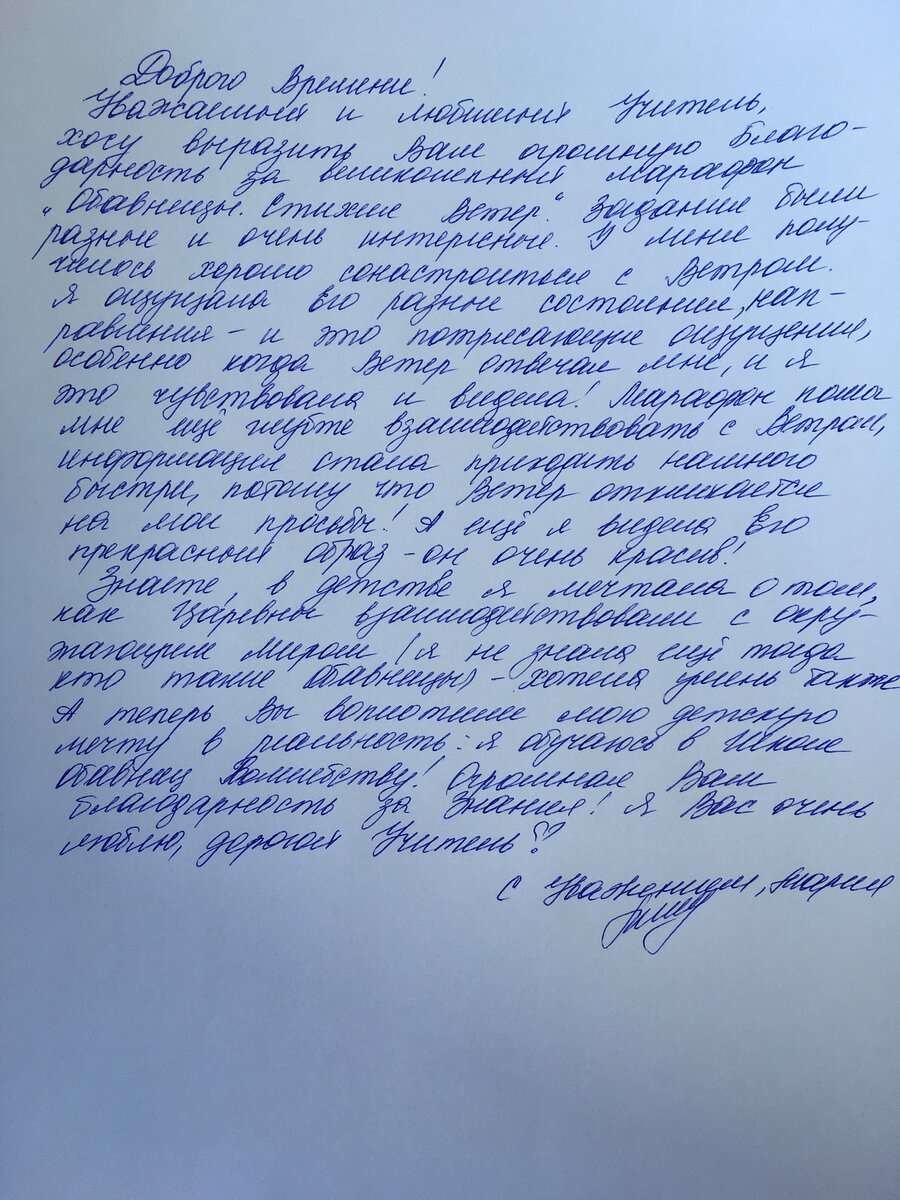 Доброго Времени!
Уважаемый и любимый Учитель,
хочу выразить Вам огромную Благо-
дарность за великолепный Марафон
"Обавницы. Стихия Ветер". Задания были
разные и очень интересные. У меня полу-
чилось хорошо сонастроиться с Ветром.
Я ощущала Его разные состояния, нап-
равления - и это потрясающие ощущения,
особенно когда Ветер отвечал мне, и я
это чувствовала и видела! Марафон помог
мне ещё глубже взаимодействовать с Ветром,
информация стала приходить намного
быстрее, потому что Ветер откликается
на мои просьбы! А ещё я видела Его
прекрасный образ - он очень красив!
Знаете, в детстве я мечтала о том,
как Царевны взаимодействовали с окру-
жающим Миром (я не знала ещё тогда
кто такие Обавницы) - хотела уметь также
А теперь Вы воплотили мою детскую
мечту в реальность: я обучаюсь в Школе
Обавниц Волшебству! Огромная Вам
Благодарность за Знания! Я Вас очень
люблю, дорогой Учитель♡
С Уважением, Мария